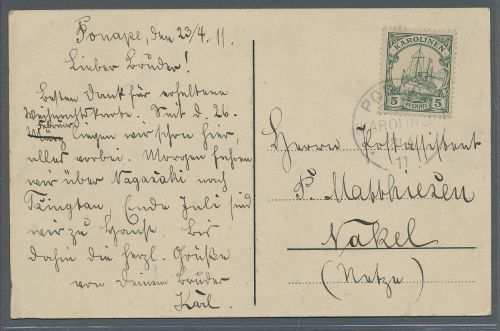 Ponape, den 23/4. 11.
Lieber Bruder!
Besten Dank für erhaltene
Weihnachtskarte. Seit d. 26.
Februar
liegen wir schon hier,
alles vorbei. Morgen fahren
wir über Nagasaki nach
Tsingtau. Ende Juli sind
wir zu Hause. Bis
dahin die herzl. Grüße
von deinem Bruder
Karl.
KAROLINEN
5 PFENNIG 5
PO
KAROLINEN
11
Herrn Postassistent
P. Matthiesen
Nakel
(Netze)